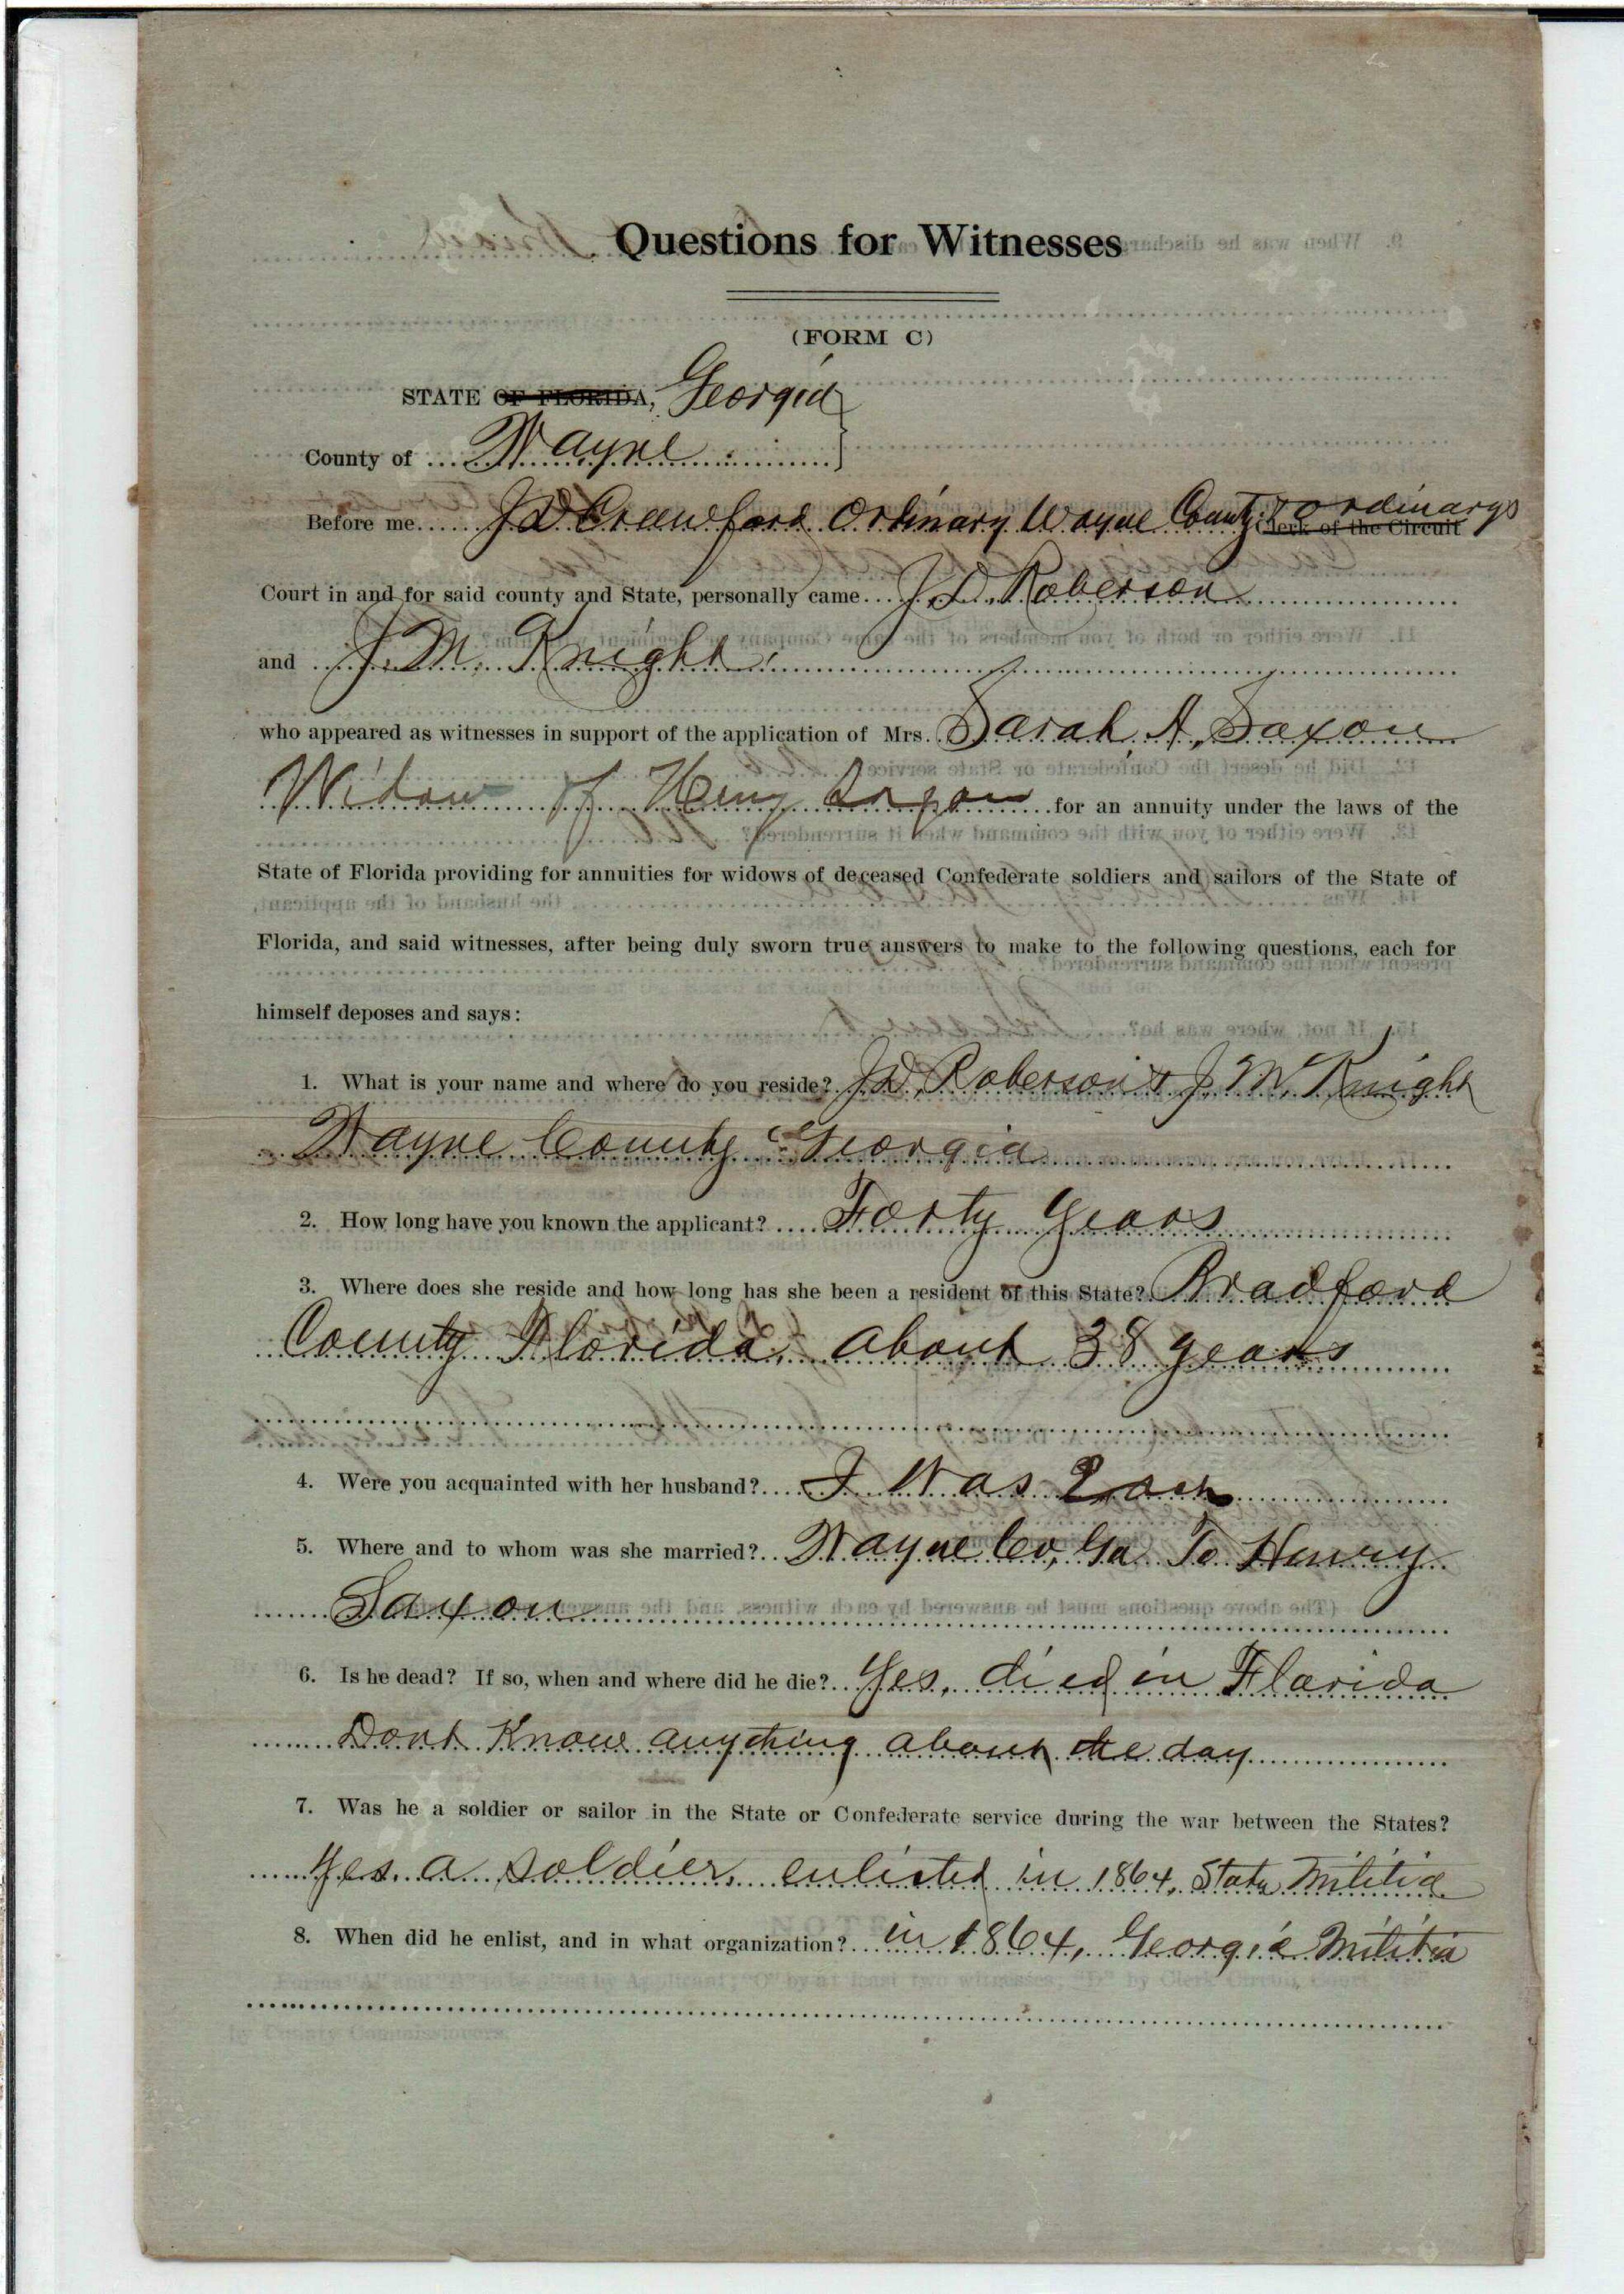 Questions for Witnesses
(FORM C)
STATE OF FLORIDA, Georgia
County of Wayne
Before me J D Crawford Ordinary Wayne County Clerk of the Circuit ordinarys
Court in and for said county and State, personally came J. D. Roberson
and J. M. Knight
who appeared as witnesses in support of the application of Mrs. Sarah A, Saxon
Widow of Henry Saxon for an annuity under the laws of the
State of Florida providing for annuities for widows of deceased Confederate soldiers and sailors of the State of
Florida, and said witnesses, after being duly sworn true answers to make to the following questions, each for
himself deposes and says:
1. What is your name and where do you reside? J D, Roberson & J. M. Knight
Wayne County Georgia
2. How long have you known the applicant? Forty years
3. Where does she reside and how long has she been a resident of this State? Bradford
County Florida, about 38 years
4. Were you acquainted with her husband? I Was Each
5. Where and to whom was she married? Wayne Co, Ga To Henry
Saxon
6. Is he dead? If so, when and where did he die? Yes, died in Florida
Dont Know anything about the day
7. Was he a soldier or sailor in the State or Confederate service during the war between the States?
Yes. a soldier, enlisted in 1864, State Militia
8. When did he enlist, and in what organization? in 1864, Georgia Militia